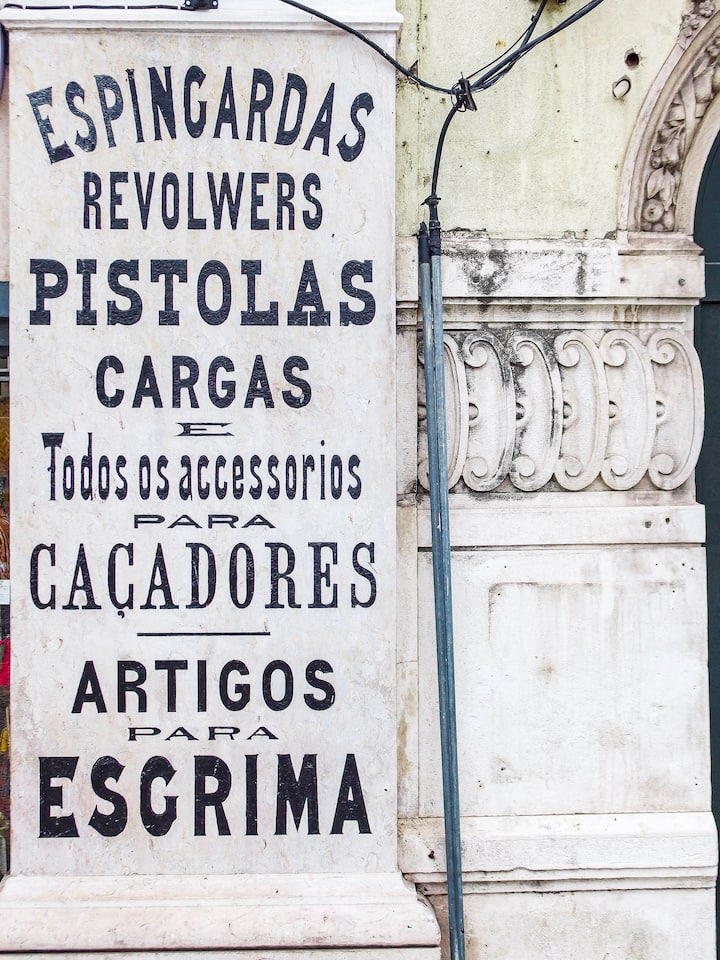 ESPINGARDAS
REVOLWERS
PISTOLAS
CARGAS
E
Todos os accessorios
PARA
CAÇADORES
ARTIGOS
PARA
ESGRIMA